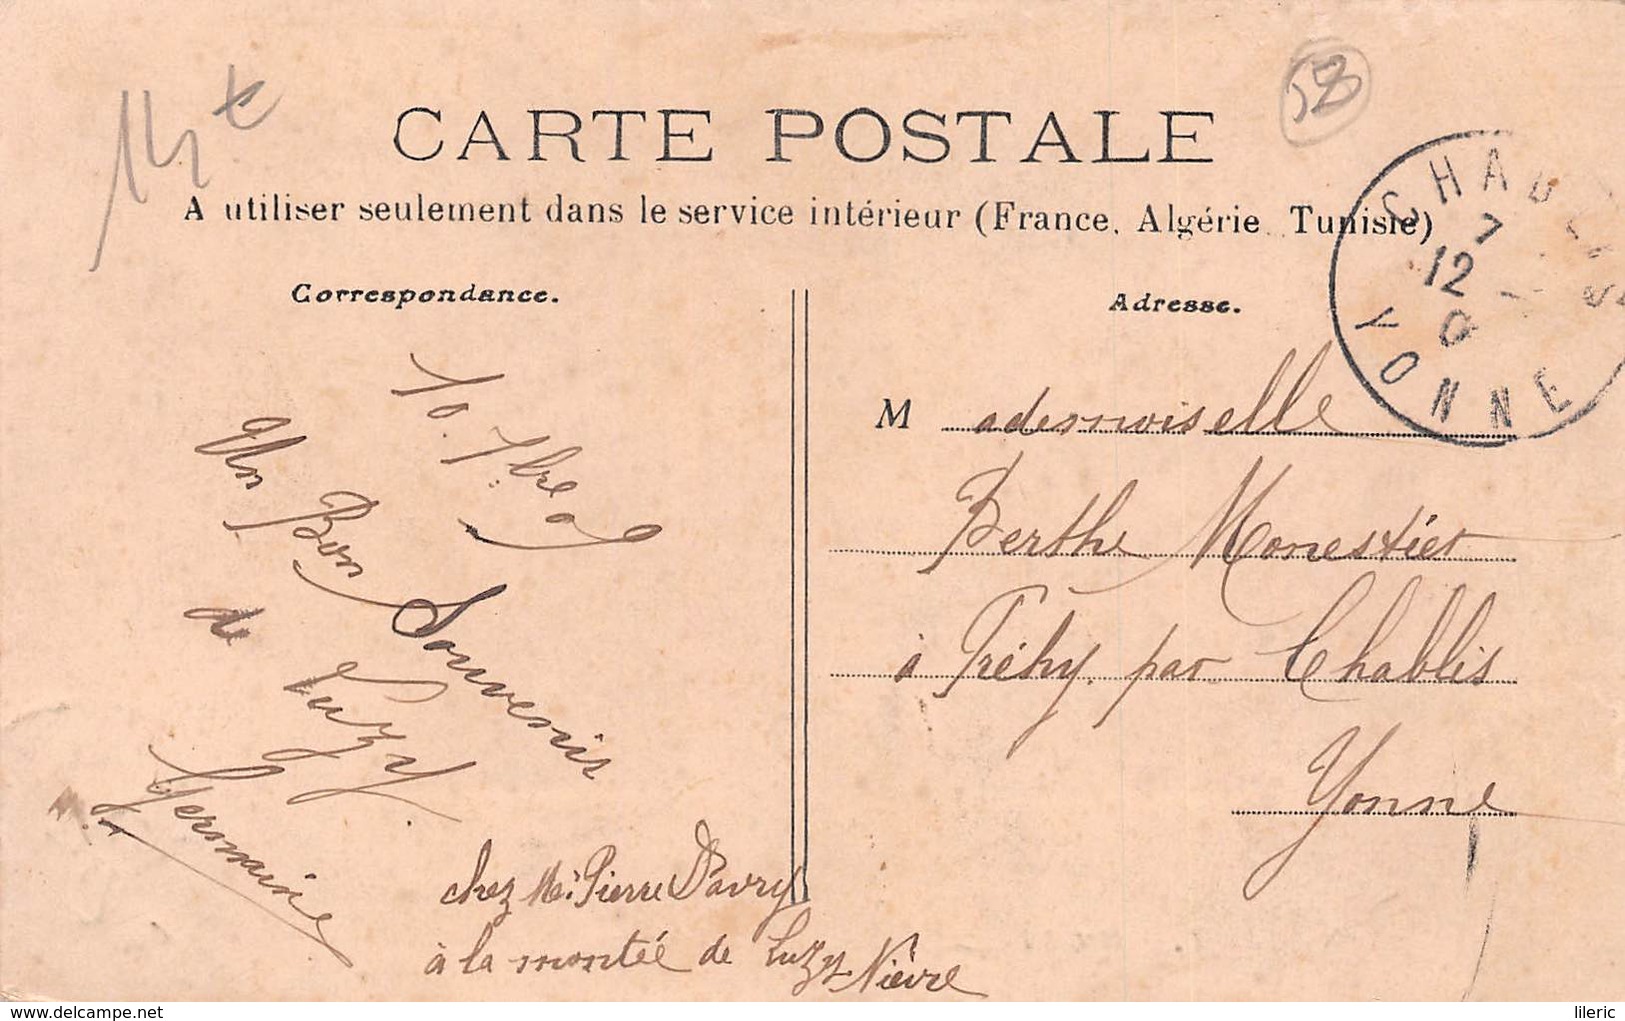 14 €
58
CARTE POSTALE
A utiliser seulement dans le service intérieur (France, Algérie, Tunisie)
Correspondance.
Adresse.
CHABLIS
7
12
YONNE
Un Bon Souvenir
de Luzy.
Germaine
chez Mr Pierre Davry
à la montée de Luzy Nièvre
Mademoiselle
Berthe Monestier
à Préhy par Chablis
Yonne
delcampe.net
lileric